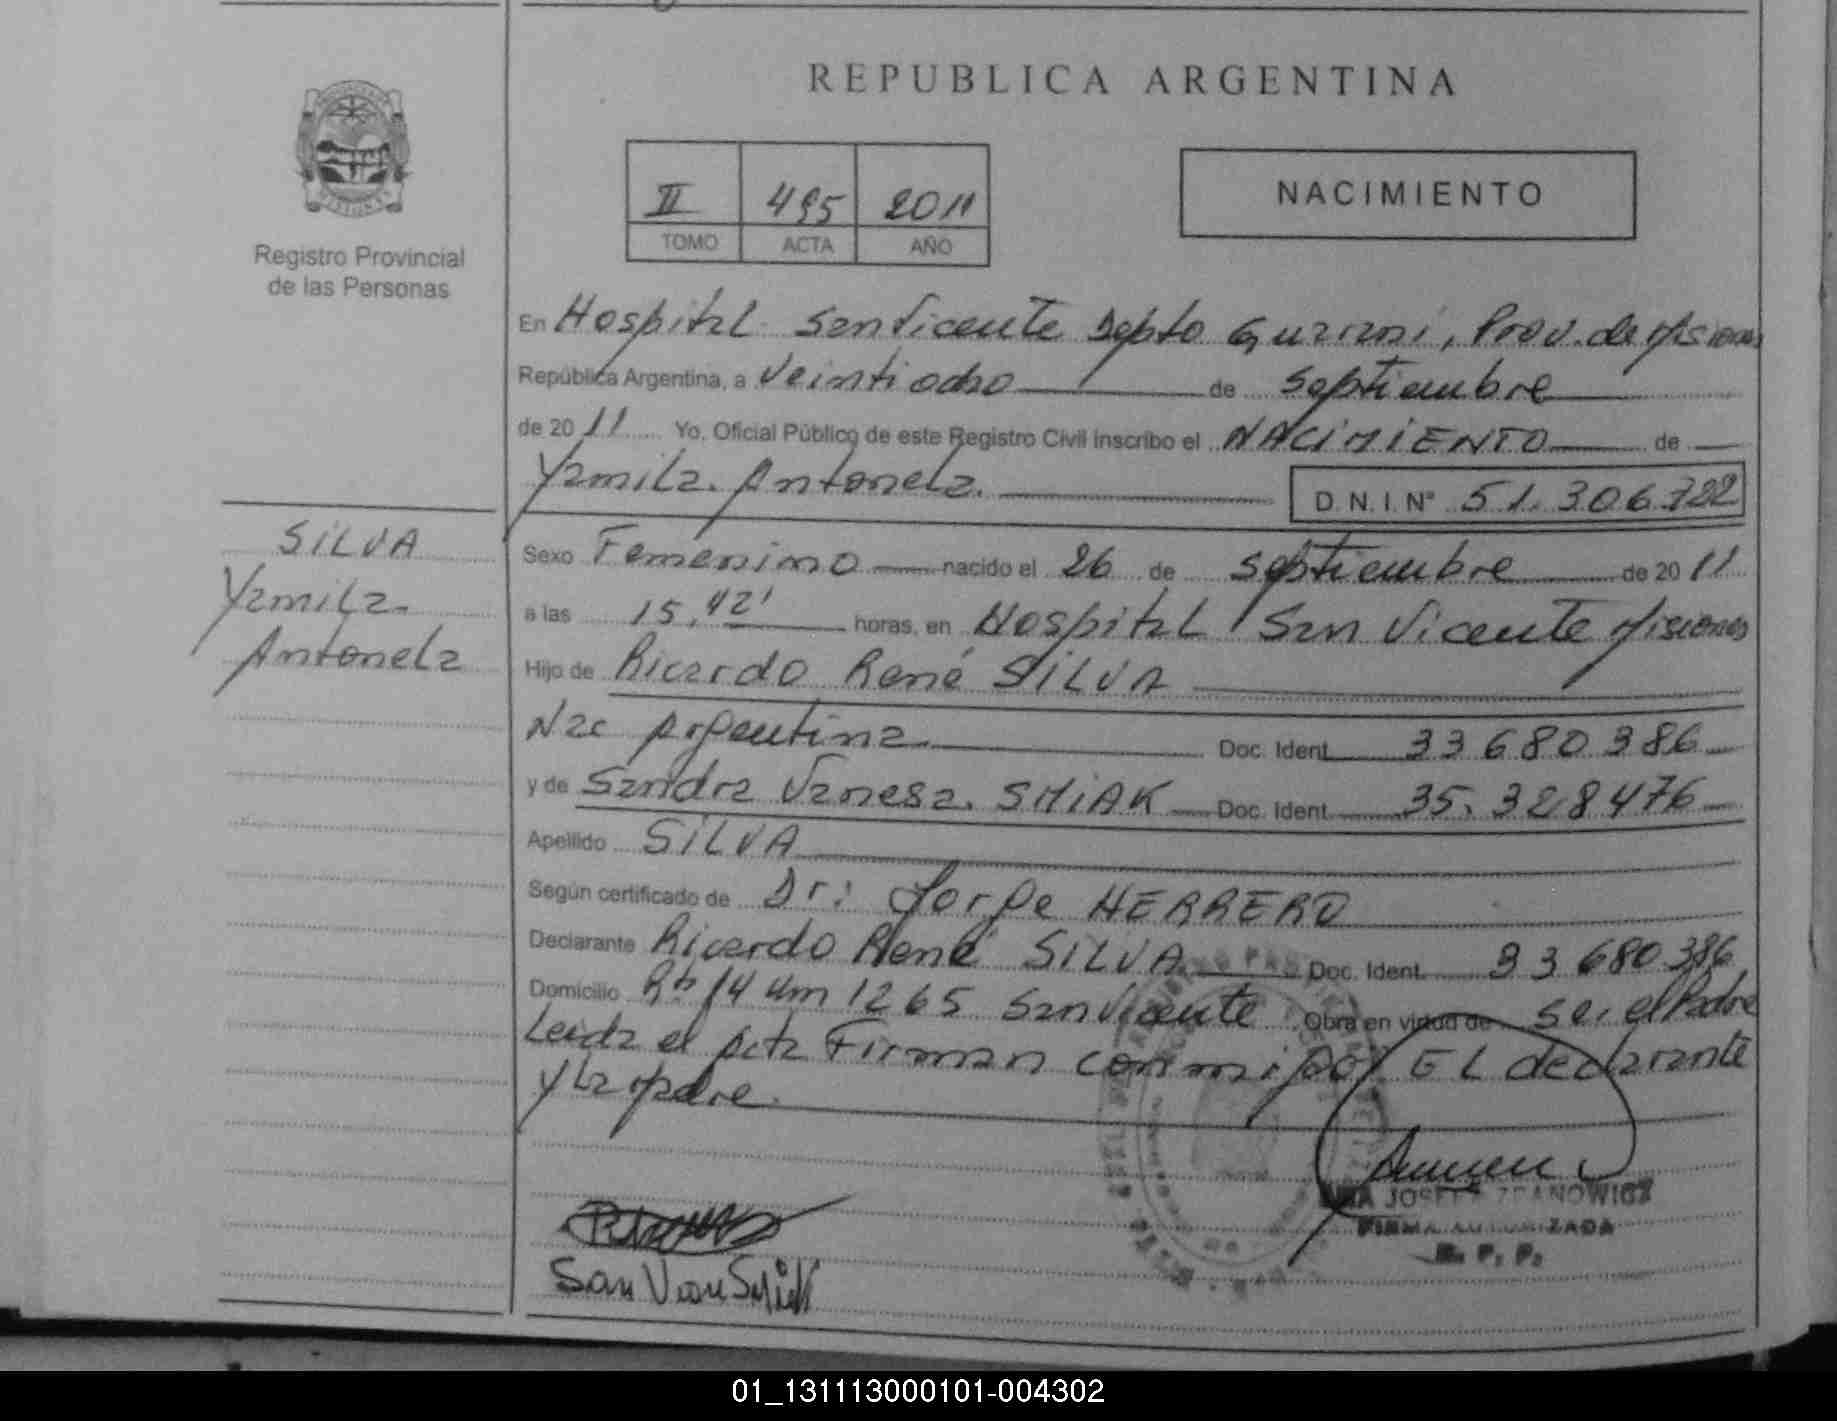 REPUBLICA ARGENTINA
II 495 2011
TOMO ACTA AÑO
NACIMIENTO
Registro Provincial
de las Personas
En Hospital San Vicente Depto Guarani, Prov. de Misiones
República Argentina, a Veintiocho de Septiembre
de 2011 Yo, Oficial Público de este Registro Civil inscribo el NACIMIENTO de
Yamila Antonela. D.N.I. Nº 51.306.722
SILVA
Yamila
Antonela
Sexo Femenino nacido el 26 de septiembre de 2011
a las 15,42' horas, en Hospital San Vicente Misiones
Hijo de Ricardo René SILVA
Nac Argentina Doc. Ident. 33680386
y de Sandra Vanesa. SMIAK Doc. Ident. 35.328476
Apellido SILVA
Según certificado de Dr: Jorge HERRERO
Declarante Ricardo René SILVA Doc. Ident. 33680386
Domicilio Rta 14 Km 1265 San Vicente Obra en virtud de ser el Padre
Leida el Acta Firman conmigo EL declarante
y la Madre.
JOSEFA ZDANOWICZ
FIRMA AUTORIZADA
R. P. P.
01_131113000101-004302